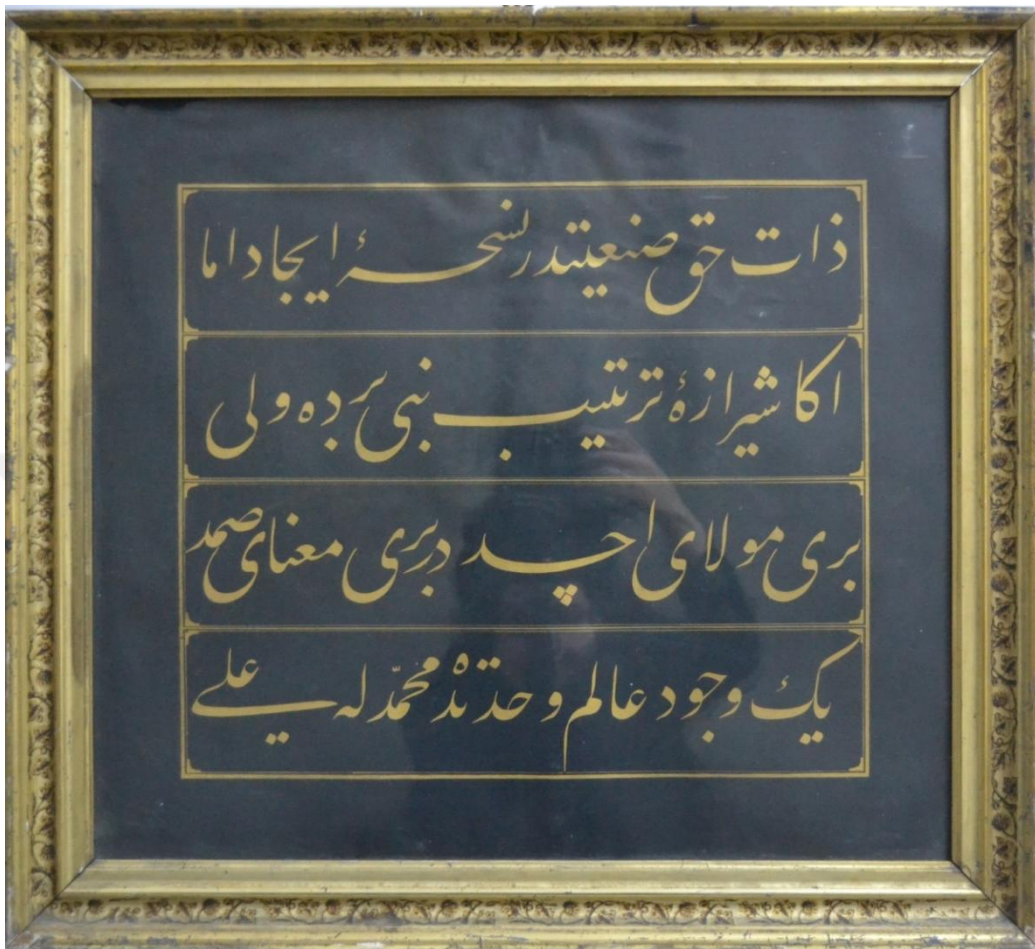 ذات حق صنعيتدر نسخۀ ايجاد اما
اكا شيرازۀ ترتيب نبى برده ولى
برى مولاى احد در برى معناى صمد
يك وجود عالم وحدتده محمّدله على